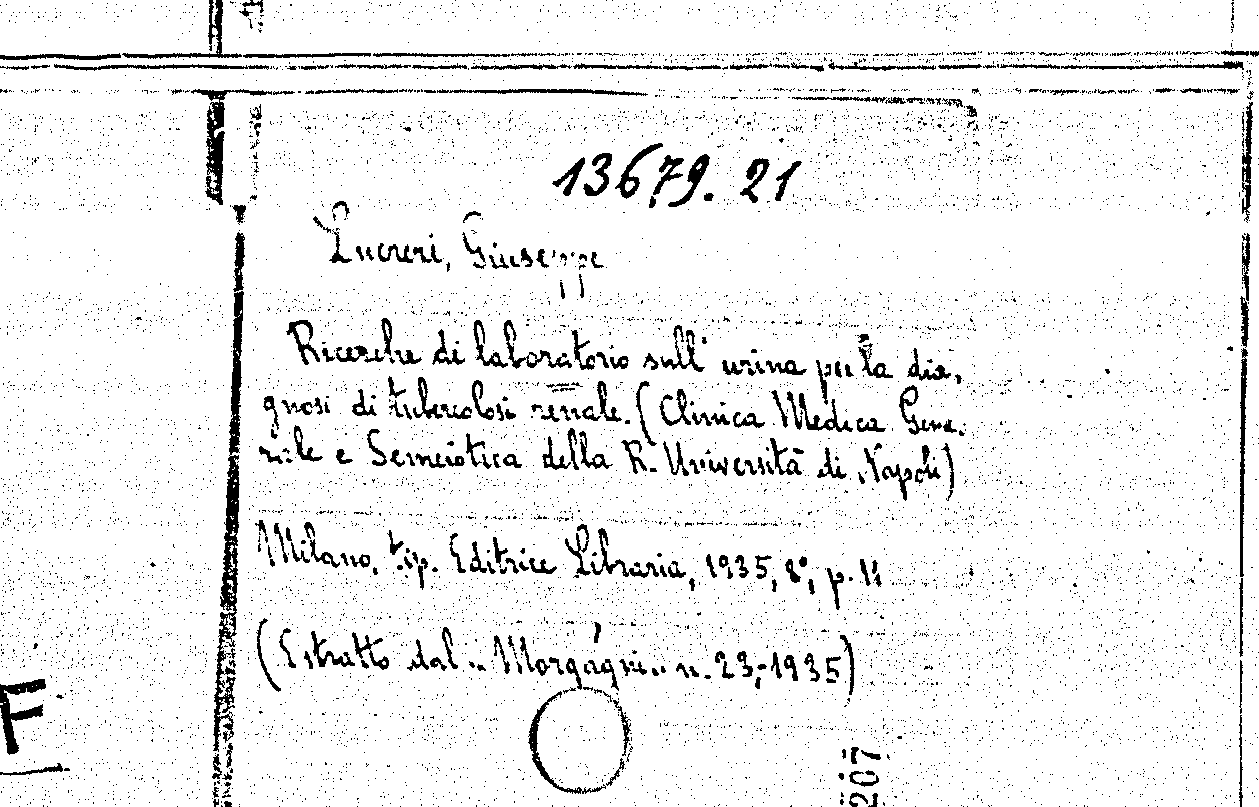 13679. 21
Lucreri, Giuseppe
Ricerche di laboratorio sull' urina per la dia-
gnosi di tubercolosi renale. (Clinica Medica Gene-
rale e Semeiotica della R. Università di Napoli)
Milano, tip. Editrice Libraria, 1935, 8°, p. 11
(Estratto dal " Morgagni " n. 23,-1935)
F
207